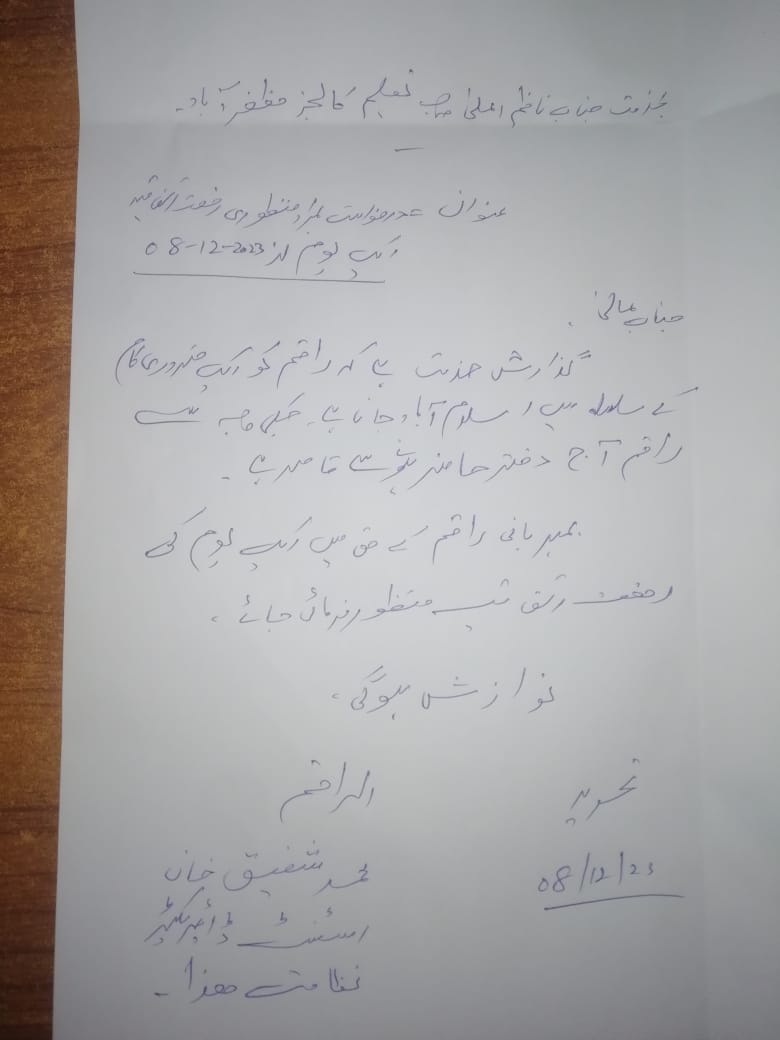 بخدمت جناب ناظم اعلیٰ صاحب تعلیم کالجز مظفرآباد۔
عنوان :- درخواست بمراد منظوری رخصت اتفاقیہ
ایک یوم از 2023-12-08
جناب عالی!
گذارش خدمت ہے کہ راقم کو ایک ضروری کام
کے سلسلہ میں اسلام آباد جانا ہے۔ جسکی وجہ سے
راقم آج دفتر حاضر ہونے سے قاصر ہے۔
بمہربانی راقم کے حق میں ایک یوم کی
رخصت اتفاقیہ منظور فرمائی جائے۔
نوازش ہوگی۔
تحریر
08/12/23
الراقم
محمد شفیق خان
اسسٹنٹ ڈائریکٹر
نظامت ھذا۔